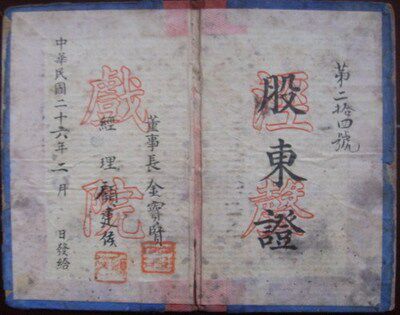 第二拾四號
股東證
涇聲
戲院
董事長 金寶賢
經理 顧建侯
中華民國二十六年二月 日發給